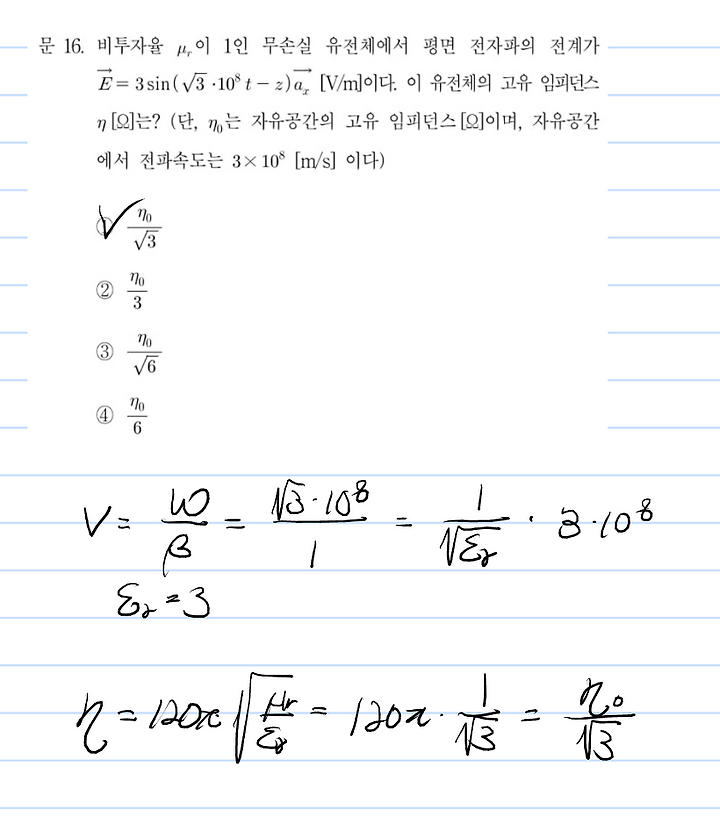 문 16. 비투자율 μᵣ이 1인 무손실 유전체에서 평면 전자파의 전계가
E⃗ = 3 sin(√3 ·10⁸ t − z) a⃗ₓ [V/m]이다. 이 유전체의 고유 임피던스
η [Ω]는? (단, η₀는 자유공간의 고유 임피던스[Ω]이며, 자유공간
에서 전파속도는 3×10⁸ [m/s] 이다)
① η₀/√3
② η₀/3
③ η₀/√6
④ η₀/6
V = ω/β = √3·10⁸/1 = 1/√εᵣ · 3·10⁸
εᵣ = 3
η = 120π √(μᵣ/εᵣ) = 120π · 1/√3 = η₀/√3